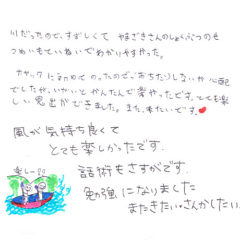 川だったので、すずしくて やまざきさんのしょくぶつのせ
つめいもていねいでわかりやすかった。
カヤックに初めてのったのでおちたりしないか心配
でしたが、いがいとかんたんで楽やったです。とても楽
しい思出ができました。また、来たいです。❤
風が気持ち良くて
とても楽しかったです。
話術もさすがです。
勉強になりました
またきたい。さんかしたい。
楽しー!!